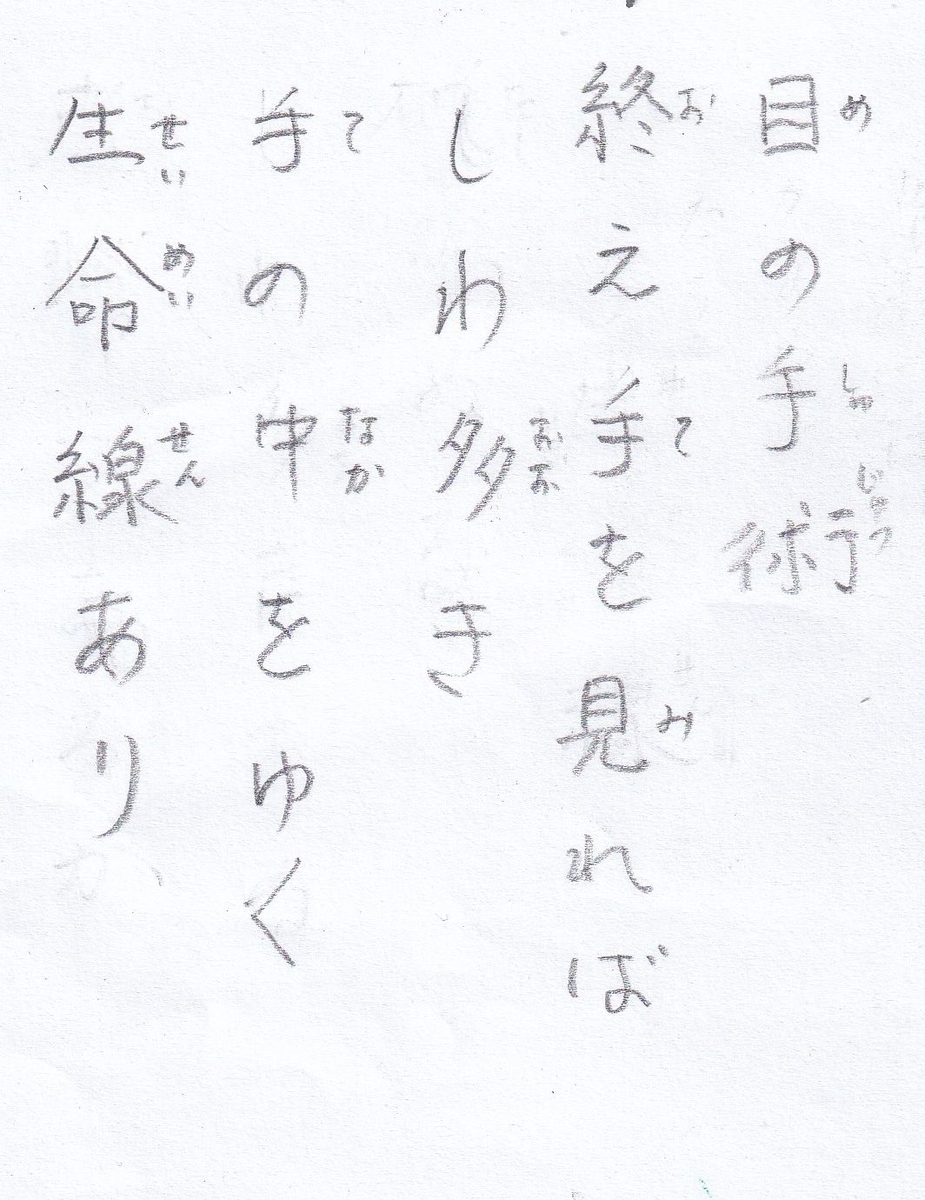 目の手術
終え手を見れば
しわ多き
手の中をゆく
生命線あり